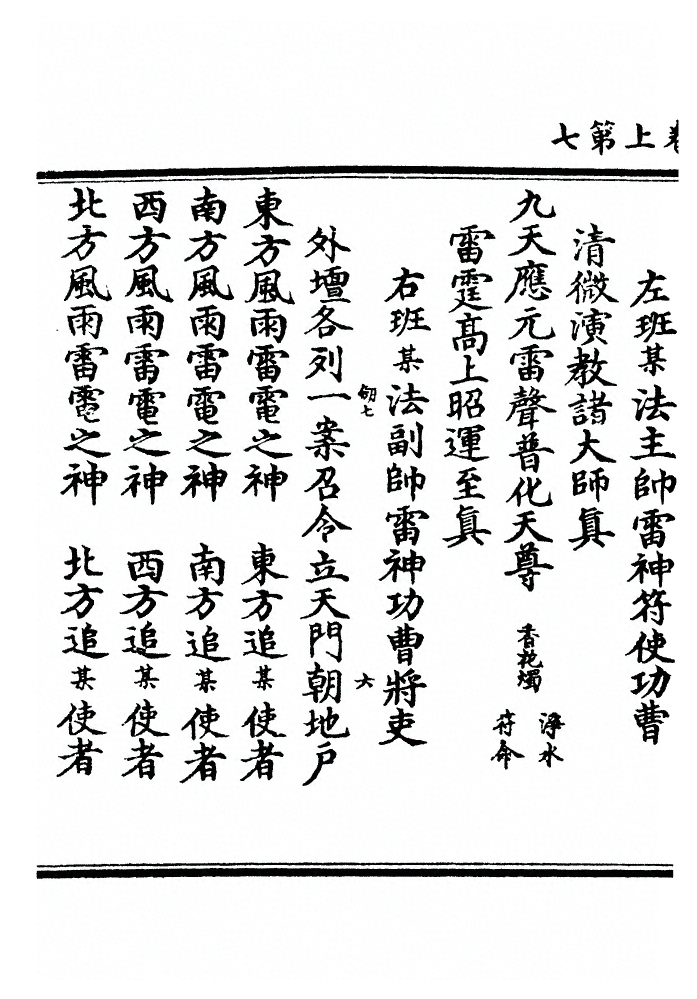 卷上第七
左班某法主帥雷神符使功曹
清微演教諸大師眞
九天應元雷聲普化天尊 香花燭 淨水 符命
雷霆髙上昭運至眞
右班某法副帥雷神功曹將吏
七 六
外壇各列一案召令立天門朝地戶
東方風雨雷電之神 東方追某使者
南方風雨雷電之神 南方追某使者
西方風雨雷電之神 西方追某使者
北方風雨雷電之神 北方追某使者